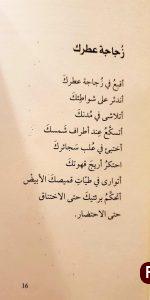 زُجاجة عطرك
أقبعُ في زُجاجة عطركَ
أندثر على شواطئكَ
أتلاشى في مُدنكَ
أتسكّعُ عند أطراف شمسكَ
أختبئ في عُلب سجائركَ
أحتكرُ أريجَ قهوتكَ
أتوارى في طيّاتِ قميصكَ الأبيضْ
أتحكّمُ برئتيكَ حتى الاختناق
حتى الاحتضار.
16